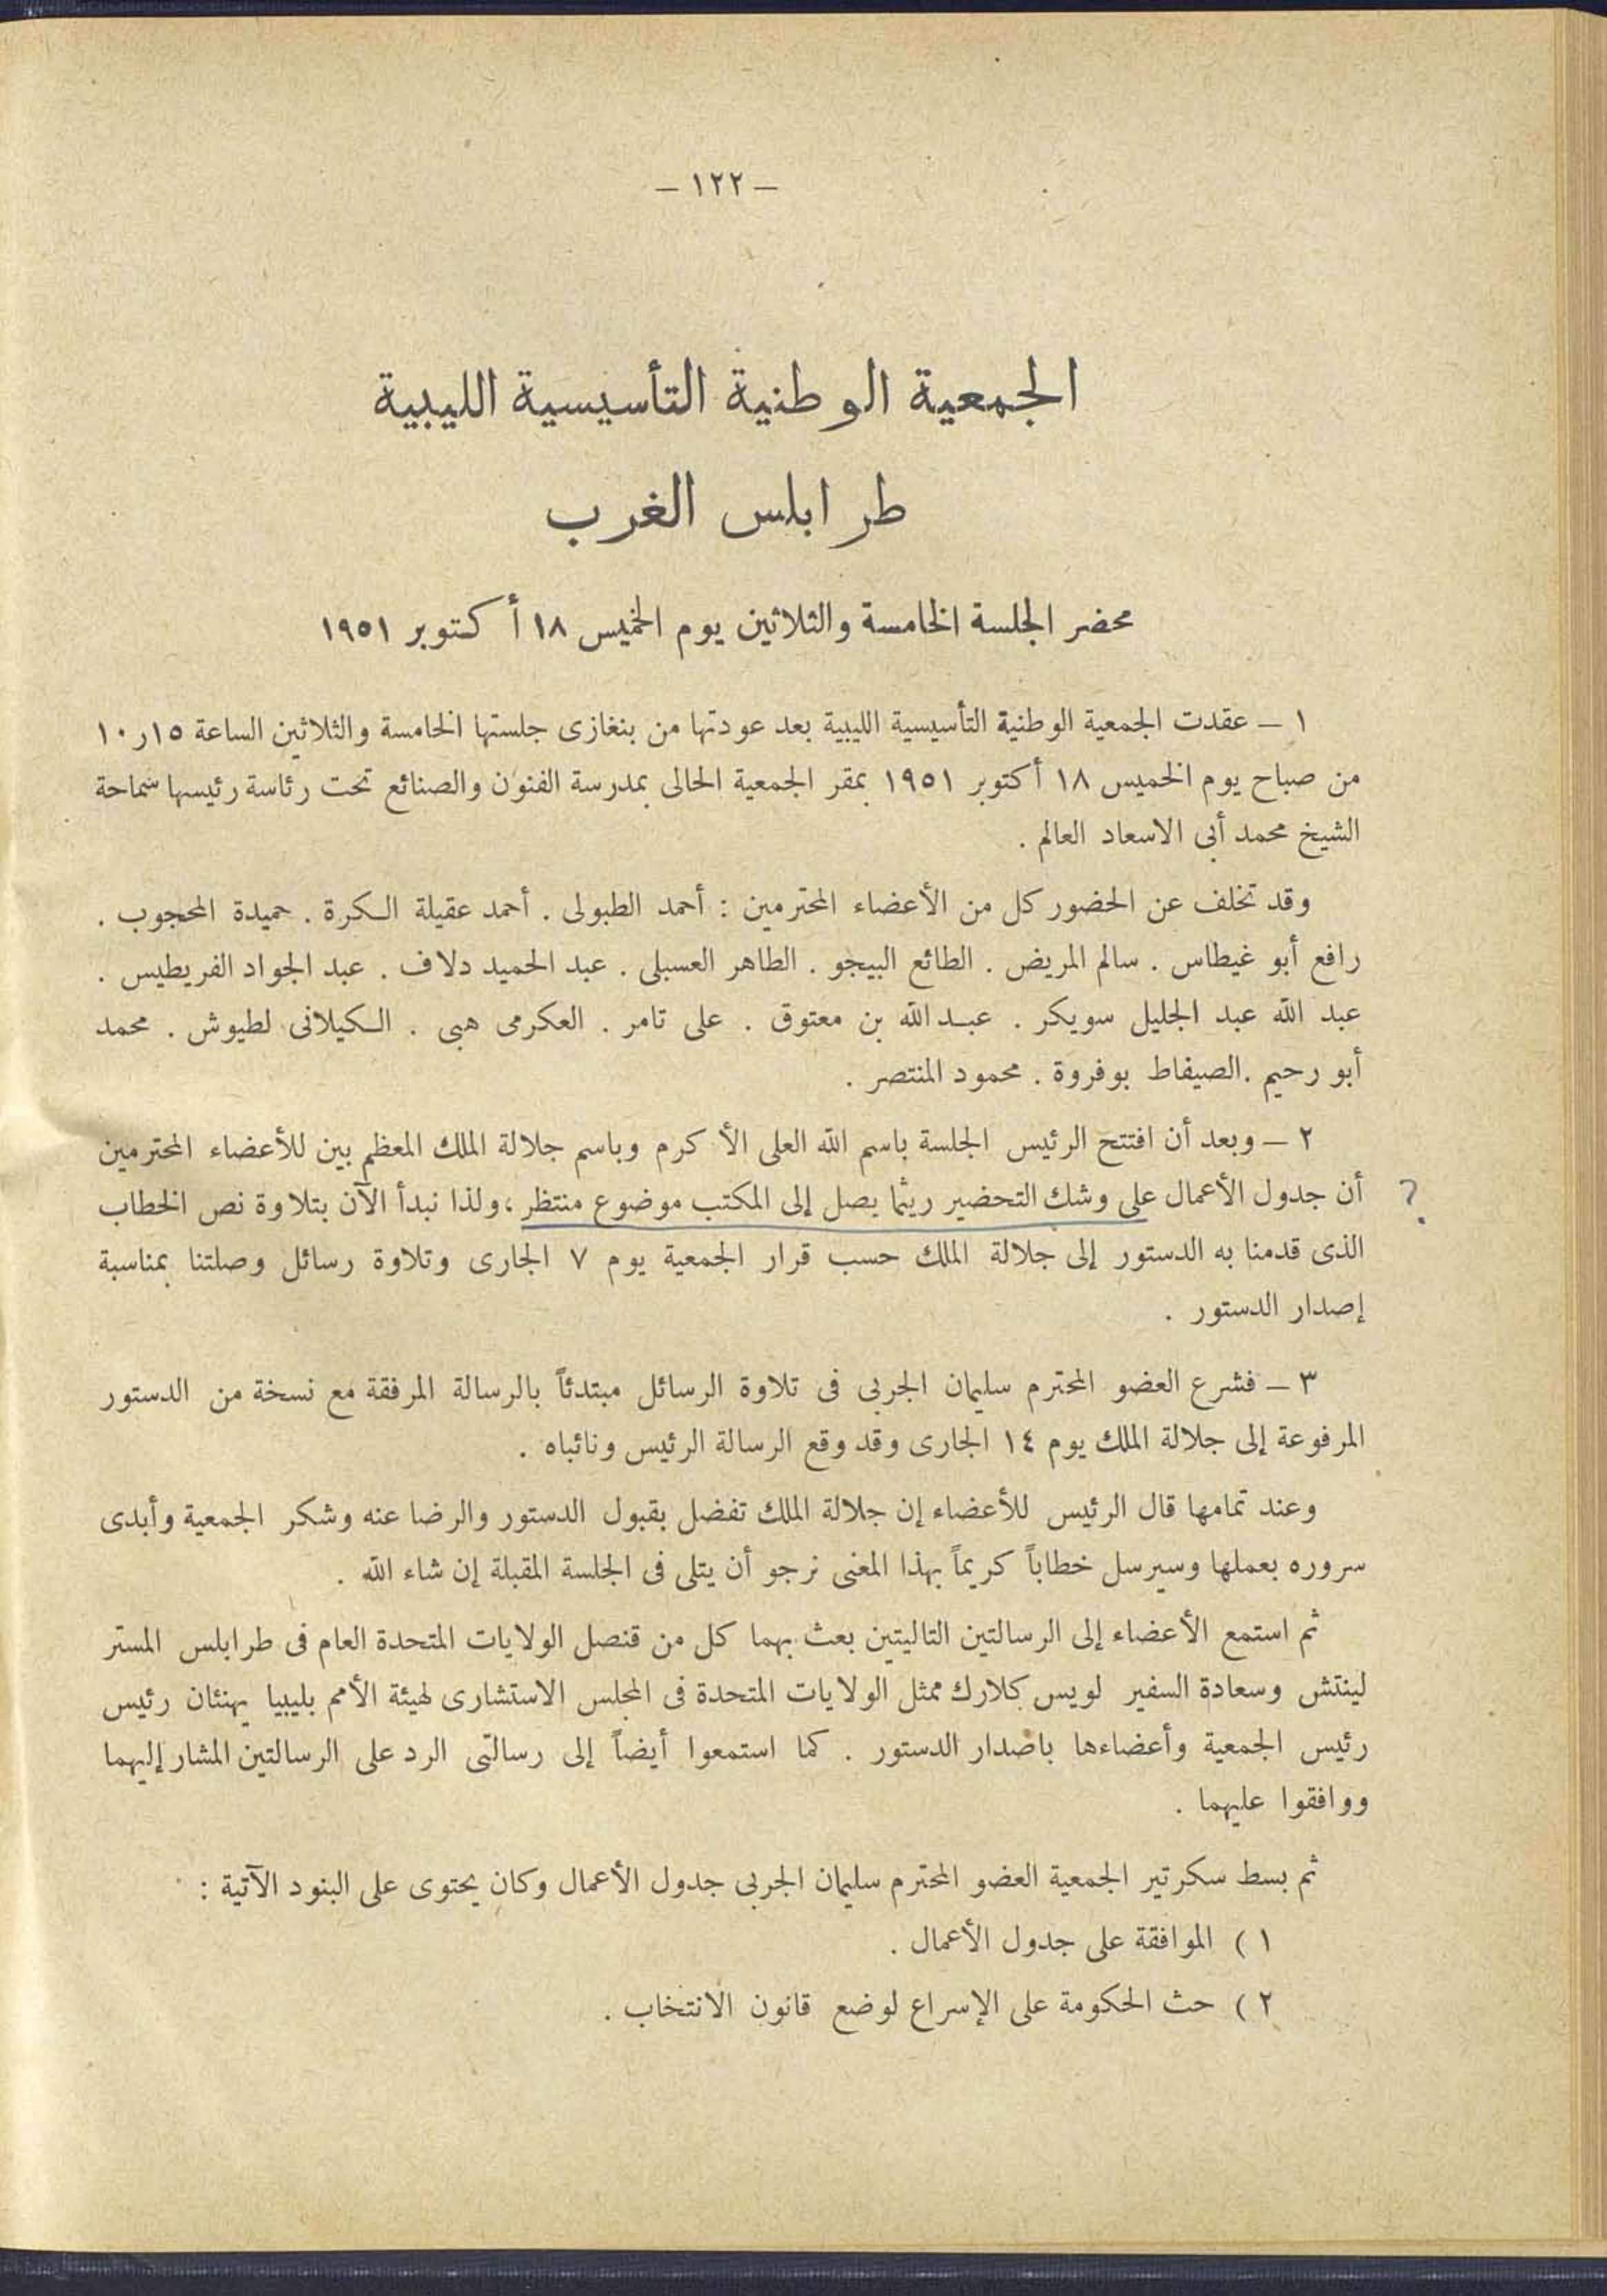 – ١٢٢ –
الجمعية الوطنية التأسيسية الليبية
طرابلس الغرب
محضر الجلسة الخامسة والثلاثين يوم الخميس ١٨ أكتوبر ١٩٥١
١ – عقدت الجمعية الوطنية التأسيسية الليبية بعد عودتها من بنغازى جلستها الخامسة والثلاثين الساعة ١٥ر١٠
من صباح يوم الخميس ١٨ أكتوبر ١٩٥١ بمقر الجمعية الحالى بمدرسة الفنون والصنائع تحت رئاسة رئيسها سماحة
الشيخ محمد أبى الاسعاد العالم .
وقد تخلف عن الحضور كل من الأعضاء المحترمين : أحمد الطبولى . أحمد عقيلة الكرة . حميدة المحجوب .
رافع أبو غيطاس . سالم المريض . الطائع البيجو . الطاهر العسبلى . عبد الحميد دلاف . عبد الجواد الفريطيس .
عبد الله عبد الجليل سويكر . عبد الله بن معتوق . على تامر . العكرمى هبى . الكيلانى لطيوش . محمد
أبو رحيم . الصيفاط بوفروة . محمود المنتصر .
٢ – وبعد أن افتتح الرئيس الجلسة باسم الله العلى الأكرم وباسم جلالة الملك المعظم بين للأعضاء المحترمين
أن جدول الأعمال على وشك التحضير ريثما يصل إلى المكتب موضوع منتظر ، ولذا نبدأ الآن بتلاوة نص الخطاب ?
الذى قدمنا به الدستور إلى جلالة الملك حسب قرار الجمعية يوم ٧ الجارى وتلاوة رسائل وصلتنا بمناسبة
إصدار الدستور .
٣ – فشرع العضو المحترم سليمان الجربى فى تلاوة الرسائل مبتدئاً بالرسالة المرفقة مع نسخة من الدستور
المرفوعة إلى جلالة الملك يوم ١٤ الجارى وقد وقع الرسالة الرئيس ونائباه .
وعند تمامها قال الرئيس للأعضاء إن جلالة الملك تفضل بقبول الدستور والرضا عنه وشكر الجمعية وأبدى
سروره بعملها وسيرسل خطاباً كريماً بهذا المعنى نرجو أن يتلى فى الجلسة المقبلة إن شاء الله .
ثم استمع الأعضاء إلى الرسالتين التاليتين بعث بهما كل من قنصل الولايات المتحدة العام فى طرابلس المستر
لينتش وسعادة السفير لويس كلارك ممثل الولايات المتحدة فى المجلس الاستشارى لهيئة الأمم بليبيا يهنئان رئيس
رئيس الجمعية وأعضاءها باصدار الدستور . كما استمعوا أيضاً إلى رسالتى الرد على الرسالتين المشار إليهما
ووافقوا عليهما .
ثم بسط سكرتير الجمعية العضو المحترم سليمان الجربى جدول الأعمال وكان يحتوى على البنود الآتية :
١ ) الموافقة على جدول الأعمال .
٢ ) حث الحكومة على الإسراع لوضع قانون الانتخاب .